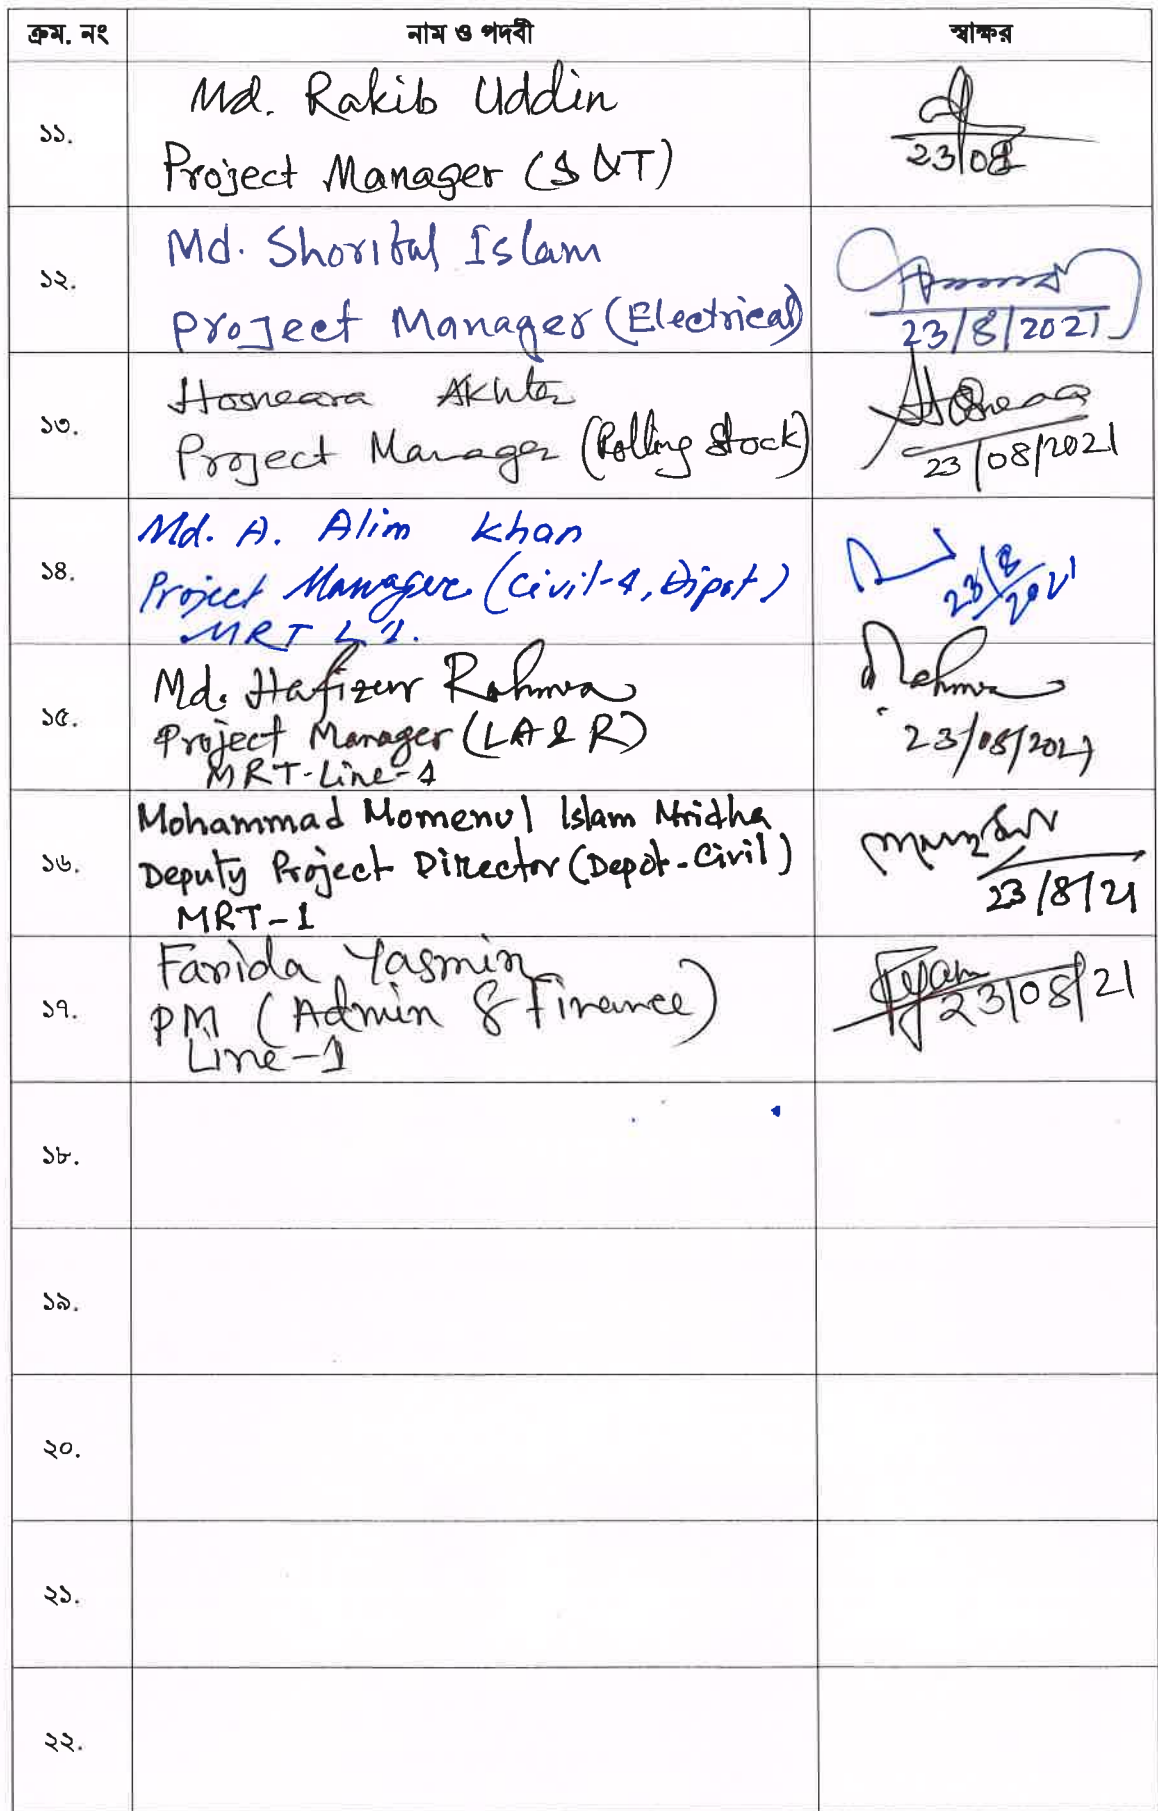 ক্রম. নং নাম ও পদবী স্বাক্ষর
১১.
Md. Rakib Uddin
Project Manager (S&T)
23/08
১২.
Md. Shoriful Islam
Project Manager (Electrical)
23/8/2021
১৩.
Hosneara Akhter
Project Manager (Rolling Stock)
23/08/2021
১৪.
Md. A. Alim Khan
Project Manager (Civil-4, Dipot)
MRT L 1.
23/8
2021
১৫.
Md. Hafizur Rahman
Project Manager (LA & R)
MRT-Line-1
Rahman
23/08/2021
১৬.
Mohammad Momenul Islam Mridha
Deputy Project Director (Depot-Civil)
MRT-1
23/8/21
১৭.
Farida Yasmin
PM (Admin & Finance)
Line-1
23/08/21
১৮.
১৯.
২০.
২১.
২২.